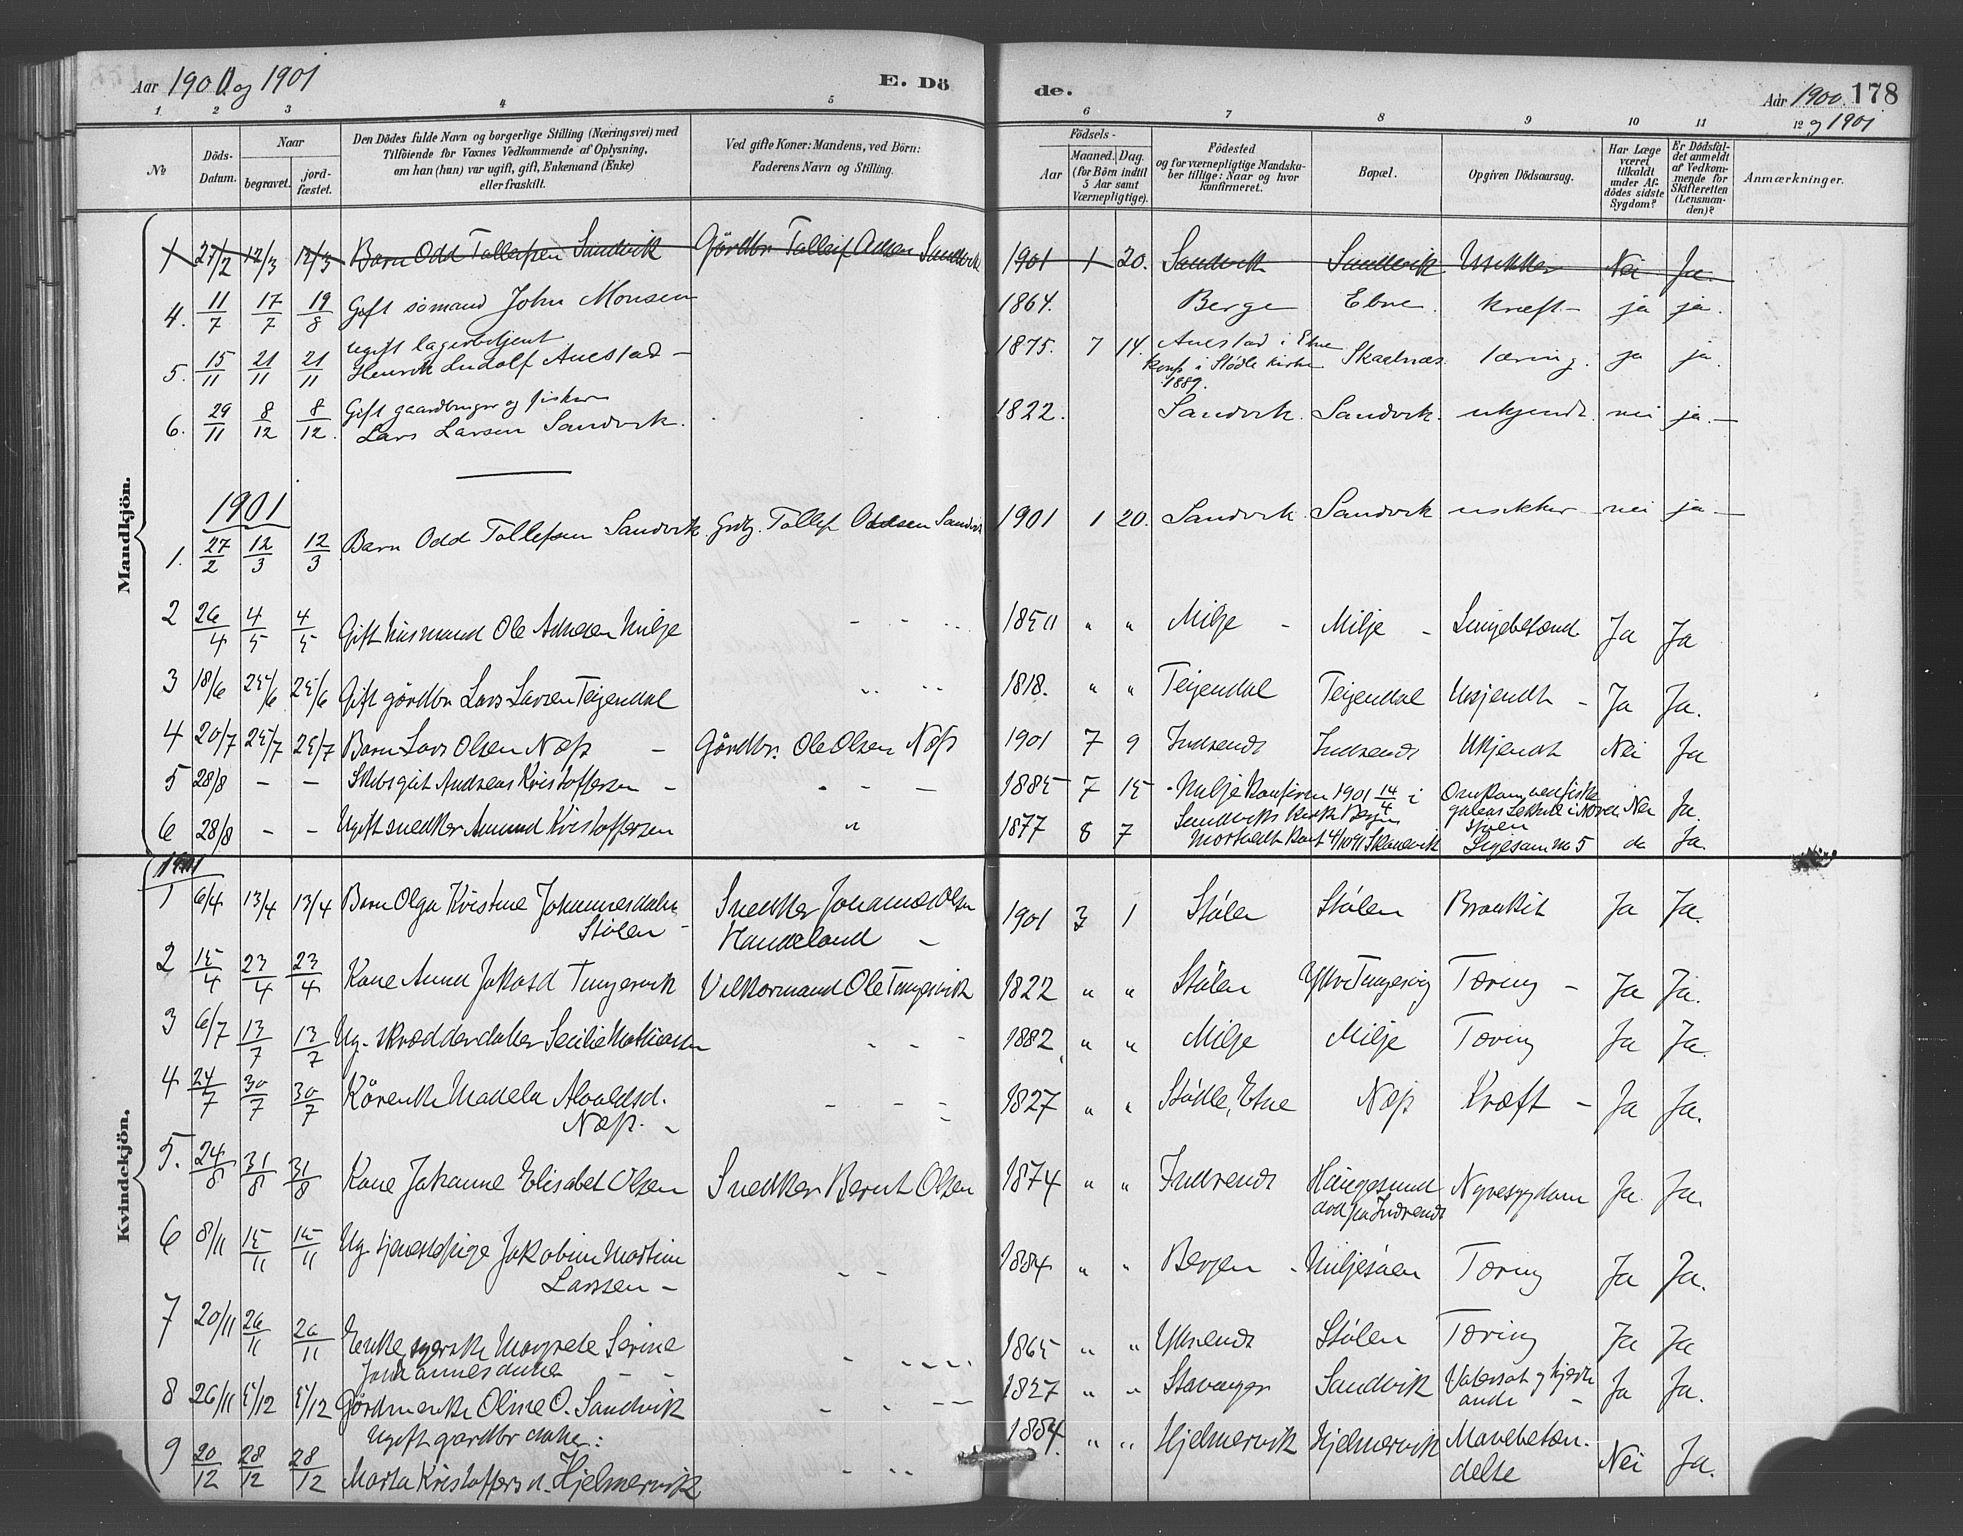 Aar 1900 og 1901
E. Dö
de.
Aar 1900. 178
og 1901
1 2 3 4 5 6 7 8 9 10 11 12
№
Döds-Datum.
Naar
begravet.
jord-fæstet.
Den Dödes fulde Navn og borgerlige Stilling (Næringsvei) med
Tilföiende for Voxnes Vedkommende af Oplysning,
om han (hun) var ugift, gift, Enkemand (Enke)
eller fraskilt.
Ved gifte Koner: Mandens, ved Börn:
Faderens Navn og Stilling.
Födsels-
Aar
Maaned. Dag.
(for Börn indtil
5 Aar samt
Værnepligtige).
Födested
og for værnepligtige Mandska-
ber tillige: Naar og hvor
konfirmeret.
Bopæl.
Opgiven Dödsaarsag.
Har Læge
været
tilkaldt
under Af-
dödes sidste
Sygdom?
Er Dödsfal-
det anmeldt
af Vedkom-
mende for
Skifteretten
(Lensman-
den)?
Anmærkninger.
Mandkjön.
1 27/2 12/3 12/3 Barn Odd Tollefsen Sandvik Gårdbr. Tolleif Adsen Sandvik 1901 1 20. Sandvik Sandvik Usikker Nei Ja.
4. 11/7 17/7 19/8 Gift sömand John Monsen 1864. Berge Ebne. kræft – ja ja.
5. 15/11 21/11 21/11 Ugift lagerbetjent
Henrik Ludolf Auestad – 1875. 7 14. Auestad i Etne
konf. i Stödle kirke
1889. Skaalnæs. tæring. ja ja.
6. 29/11 8/12 8/12. Gift gaardbruger og fisker
Lars Larsen Sandvik. 1822. Sandvik. Sandvik. ukjendt. nei ja. –
1901
1. 27/2 12/3 12/3 Barn Odd Tollefsen Sandvik. Grdbr. Tollef Odesen Sandvik 1901 1 20. Sandvik. Sandvik usikker – nei ja –
2 26/4 4/5 4/5 Gift husmand Ole Adnesen Milje 1850 " " Milje – Milje – Lungebetænd. Ja Ja
3 18/6 25/6 25/6 Gift gårdbr Lars Larsen Teigendal 1818. " " Teigendal Teigendal Ukjendt – Ja Ja.
4 20/7 25/7 25/7 Barn Lars Olsen Næss – Gårdbr. Ole Olsen Næss 1901 7 9 Indrendt Indrendt Ukjendt Nei Ja
5 28/8 – – Skibsgut Andreas Kristoffersen – 1885 7 15 Milje Konfirm 1901 14/4 i
Sandviks Kirke Bergen Omkom ved fiske Nei Ja.
6 28/8 – – Ugift snedker Amund Kristoffersen " 1877 8 7 Skaanevik Ligesom No 5 do Ja.
Kvindekjön.
1901
1 6/4 13/4 13/4 Barn Olga Kristine Johannesdatter
Stölen – Snedker Johannes Olsen
Handeland – 1901 3 1 Stölen Stölen Bronkit Ja Ja.
2 15/4 23/4 23/4 Kone Anna Jakobsd Tungesvik Vilkormand Ole Tungesvik 1822 " " Stölen Ytre Tungesvig Tæring – Ja Ja.
3 6/7 13/7 13/7 Ug. skrædderdatter Secilie Mathiasen 1882 " " Milje Milje Tæring Ja Ja.
4 24/7 30/7 30/7 Kårenke Madela Alvaldsd.
Næss. – 1827 " " Stödle, Etne Næss Kræft – Ja Ja.
5. 24/8 31/8 31/8 Kone Johanne Elisabet Olsen Snedker Bernt Olsen 1874 " " Indrendt Haugesund
död på Indrendt Nyresygdom Ja Ja.
6 8/11 15/11 15/11 Ug. tjenestepige Jakobine Martine
Larsen – 1884 " " Bergen – Miljesöen Tæring Ja Ja.
7 20/11 26/11 26/11 Enke, syerske Margrete Serine
Johannesdatter 1865 " " Ytrendt Stölen Tæring Ja Ja
8 26/11 5/12 5/12 Gårdmenke Oline O. Sandvik 1827 " " Stavanger Sandvik Vatersot og hjerte
onde – Ja Ja.
9 20/12 28/12 28/12 Ugift gardbr datter:
Marta Kristoffersd. Hjelmervik 1884. " " Hjelmervik Hjelmervik Mavebetæn-
delse Nei Ja.